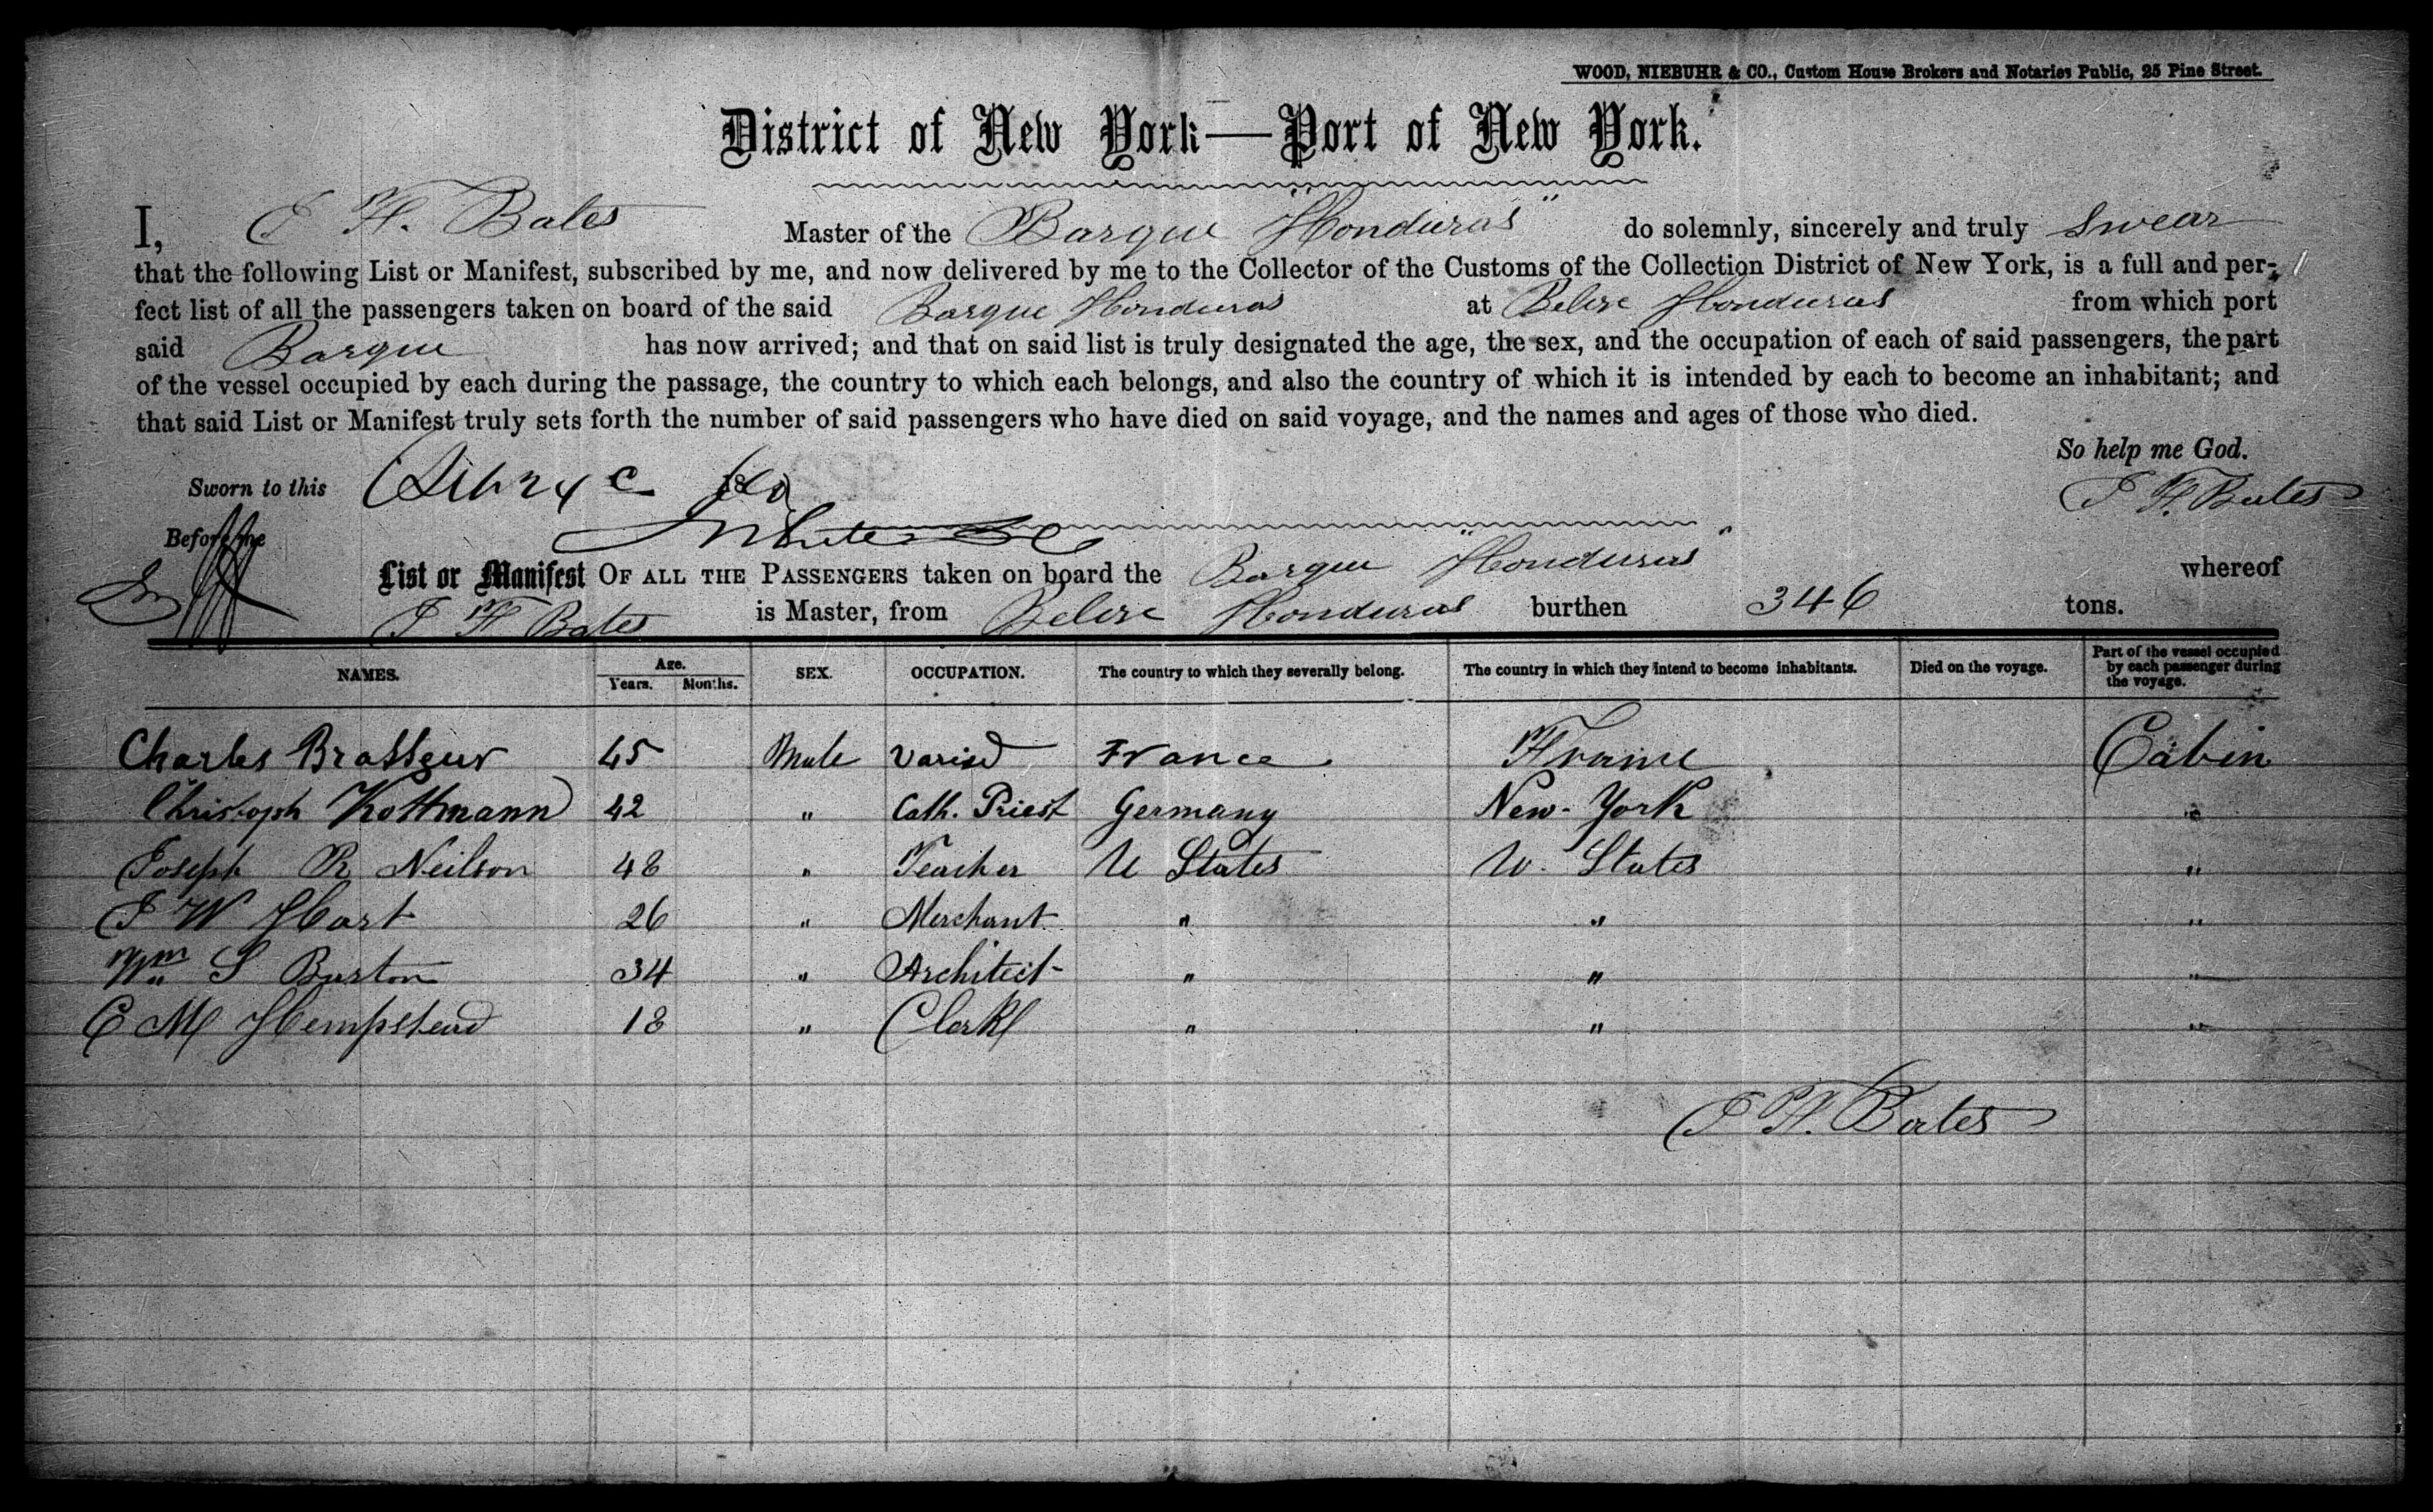 WOOD, NIEBUHR & CO., Custom House Brokers and Notaries Public, 25 Pine Street.
District of New York—Port of New York.
I, J H. Bates Master of the Barque "Honduras" do solemnly, sincerely and truly swear
that the following List or Manifest, subscribed by me, and now delivered by me to the Collector of the Customs of the Collection District of New York, is a full and per-
fect list of all the passengers taken on board of the said Barque Honduras at Belize Honduras from which port
said Barque has now arrived; and that on said list is truly designated the age, the sex, and the occupation of each of said passengers, the part
of the vessel occupied by each during the passage, the country to which each belongs, and also the country of which it is intended by each to become an inhabitant; and
that said List or Manifest truly sets forth the number of said passengers who have died on said voyage, and the names and ages of those who died.
So help me God.
Sworn to this J H. Bates
Before me
List or Manifest OF ALL THE PASSENGERS taken on board the Barque "Honduras" whereof
J H Bates is Master, from Belize Honduras burthen 346 tons.
NAMES. Age. Years. Months. SEX. OCCUPATION. The country to which they severally belong. The country in which they intend to become inhabitants. Died on the voyage. Part of the vessel occupied by each passenger during the voyage.
Charles Brasseur 45 Male France France Cabin
Christoph Kottmann 42 " Cath. Priest Germany New-York "
Joseph R Neilson 48 " Teacher U States U. States "
J W Hart 26 " Merchant " " "
Wm S Burton 34 " Architect " " "
C M Hempstead 18 " Clerk " " "
J H. Bates